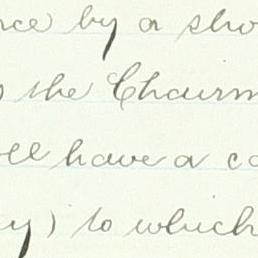 nce by a sho
the Chairm
ll have a co
y) to which